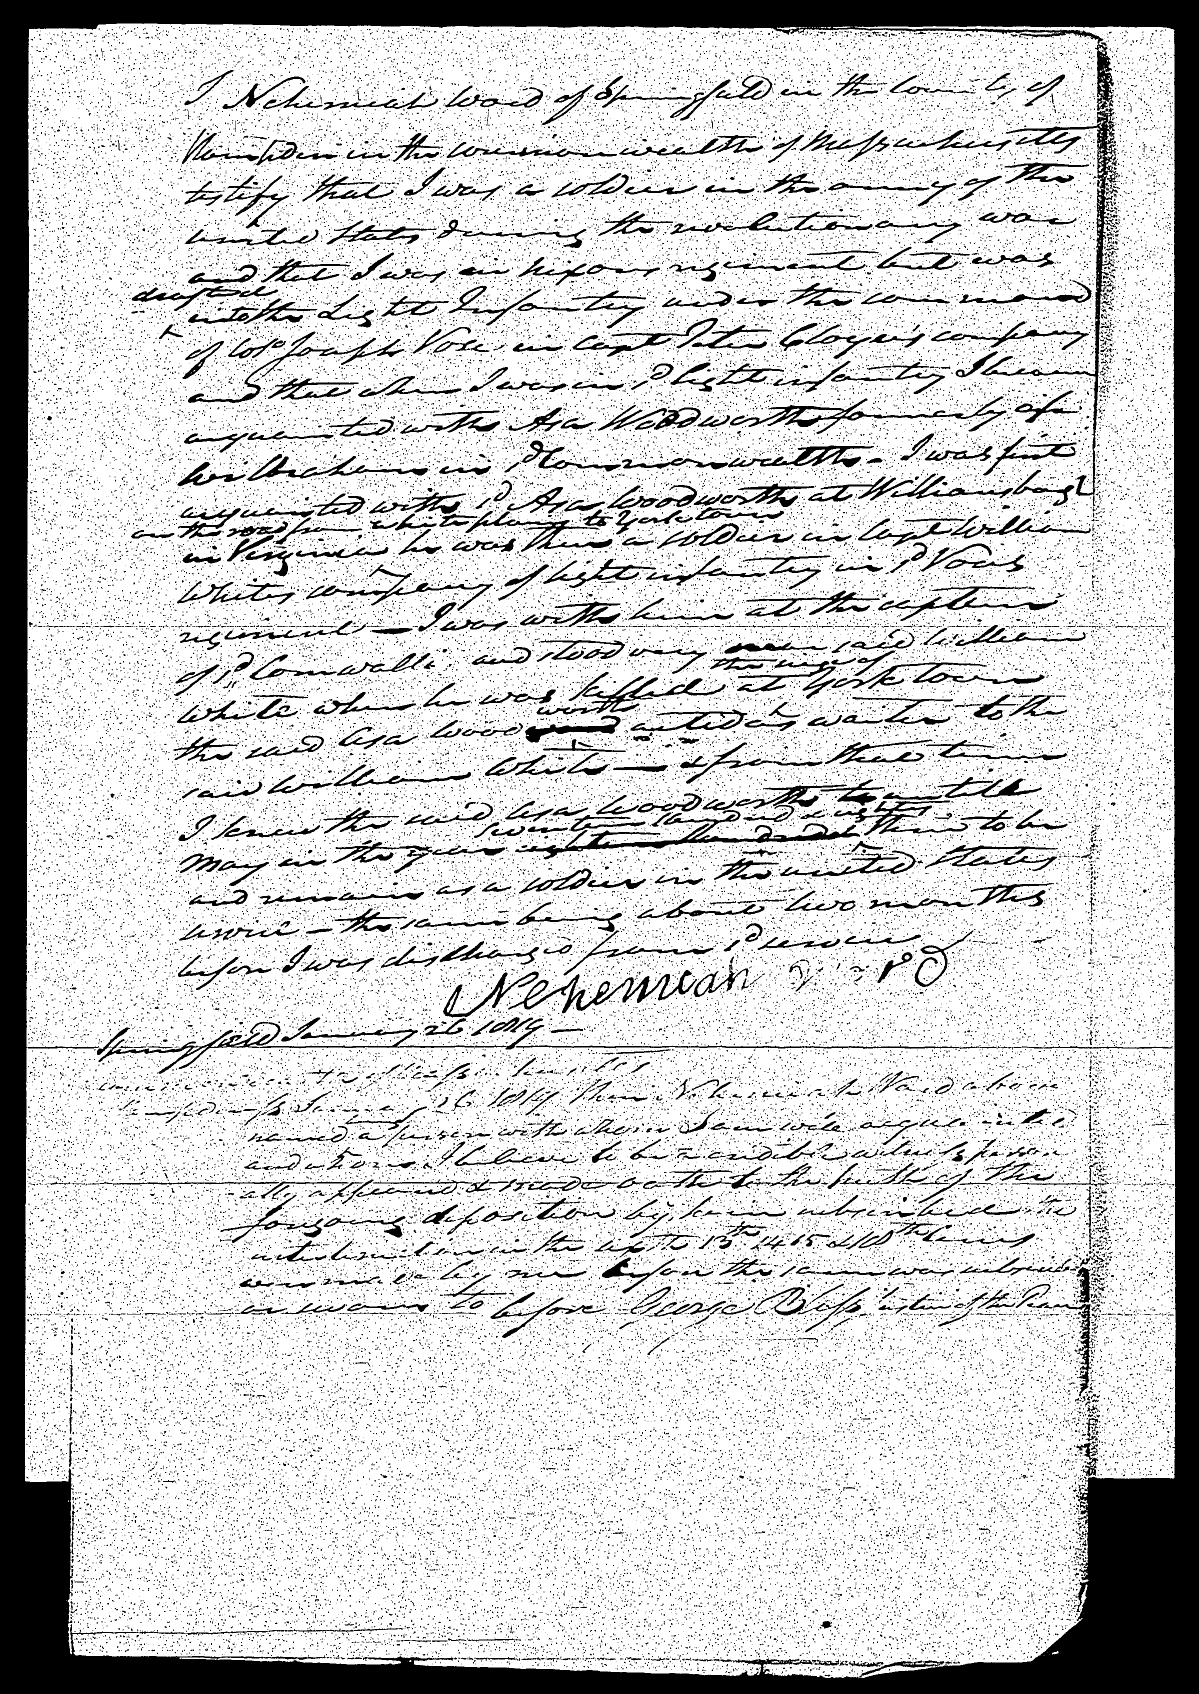 I Nehemiah Ward of Springfield in the County of
Hampden in the commonwealth of Massachusetts
testify that I was a soldier in the army of the
united States during the revolutionary war
and that I was in Nixons regiment but was
drafted
into the Light Infantry under the command
of Colo Joseph Vose in Capt Peter Cloyes's company
and that when I was in sd light infantry I became
acquainted with Asa Woodworth formerly of
Wilbraham in sd Commonwealth - I was first
acquainted with sd Asa Woodworth at Williamsburgh
on the road from whiteplains to York town
in Virginia he was then a soldier in Capt William
Whites company of light infantry in sd Voses
regiment — I was with him at the capture
of sd Cornwallis and stood very near said William
the siege of
White when he was killed at York town
worth
the said Asa wood acted as waiter to the
said William White — & from that time
I knew the said Asa Woodworth until
seventeen hundred & eighty three
May in the year eighteen hundred to be
and remain as a soldier in the united States
service - the same being about two months
before I was discharged from sd service
Nehemiah Ward
Springfield January 26 1819 —
Commonwealth of Massachusetts
Hampden ss January 26 1819 Then Nehemiah Ward above
named a person with whom I am well acquainted
and whom I believe to be a credible witness person
ally appeared & made oath to the truth of the
foregoing deposition by him subscribed the
interlineation in the 13th 14 15 & 18th lines
were made by me before the same was subscribed
or sworn to before George Bliss Justice of the Peace